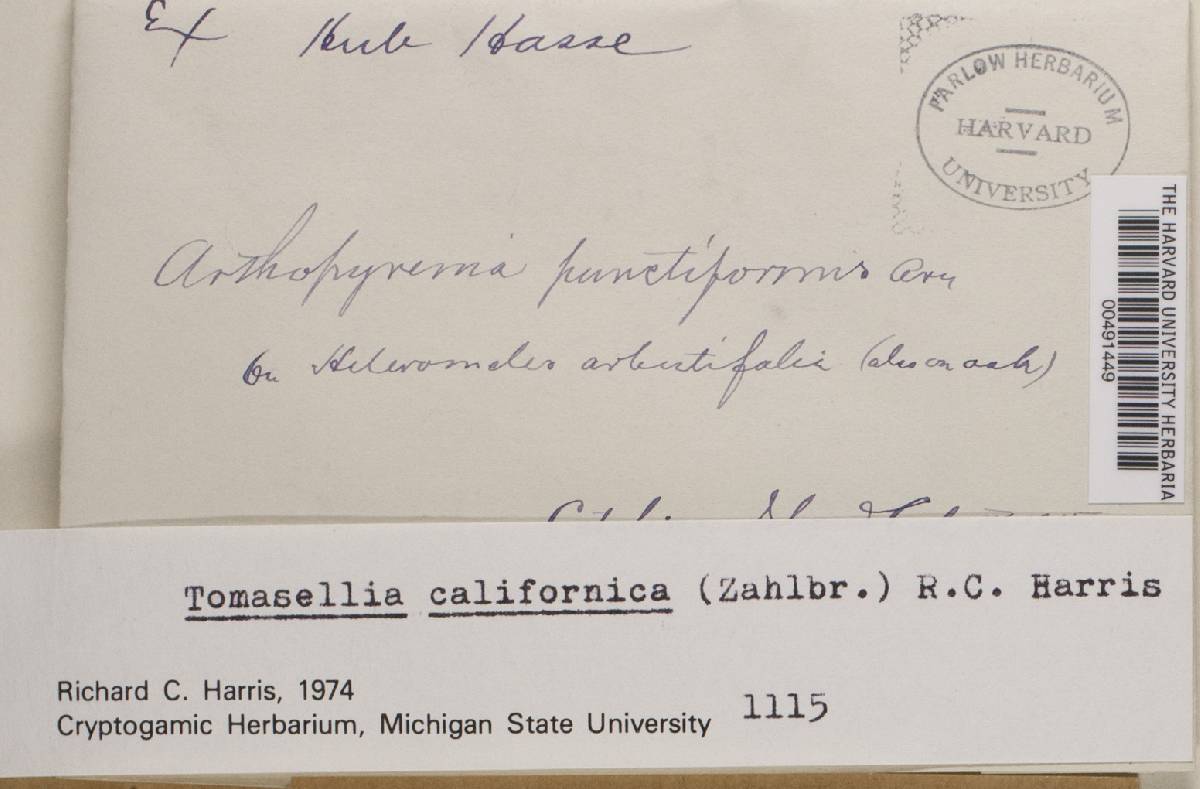 Ex Herb Hasse
FARLOW HERBARIUM
HARVARD
UNIVERSITY
Arthopyrenia punctiformis
On Heteromeles arbutifolia (also on oak)
THE HARVARD UNIVERSITY HERBARIA
00491449
Tomasellia californica (Zahlbr.) R.C. Harris
Richard C. Harris, 1974
Cryptogamic Herbarium, Michigan State University 1115